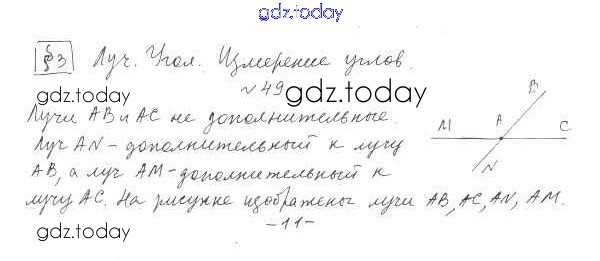 gdz.today
§3 Луч. Угол. Измерение углов.
gdz.today
№49
gdz.today
Лучи AB и AC не дополнительные.
Луч AN - дополнительный к лучу
AB, а луч AM - дополнительный к
лучу AC. На рисунке изображены лучи AB, AC, AN, AM.
B
M A C
N
gdz.today
gdz.today
-11-
gdz.today
gdz.today